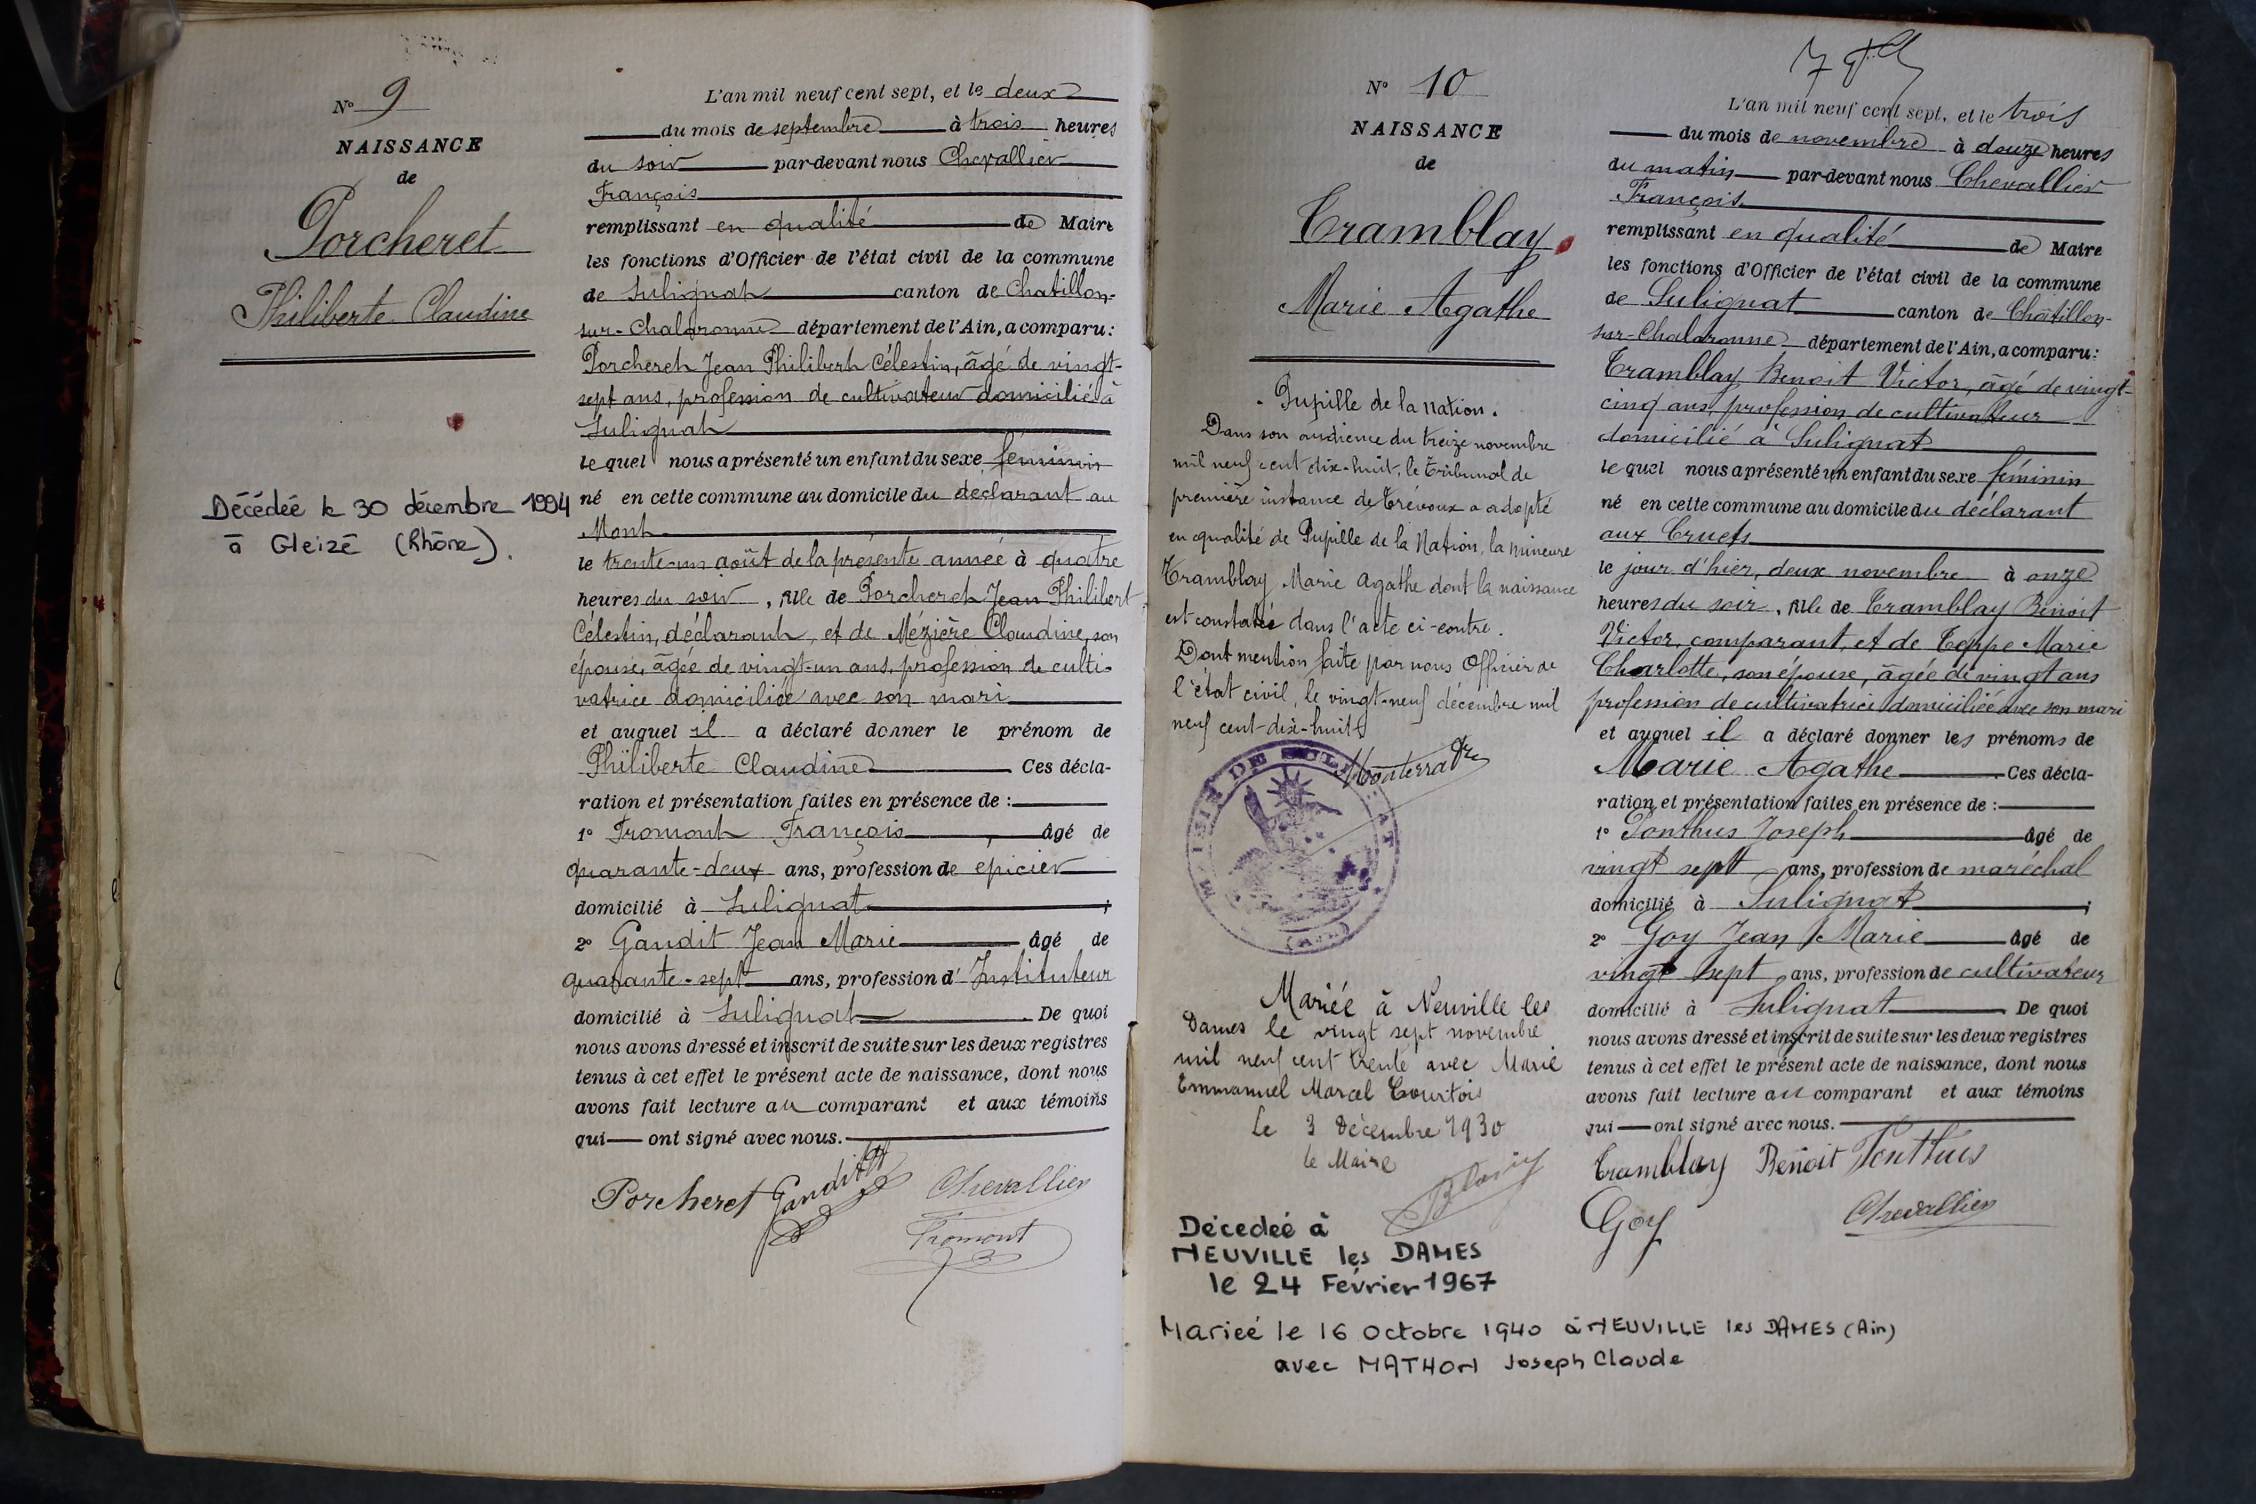 N° 9
NAISSANCE
de
Porcheret
Philiberte Claudine
Décédée le 30 décembre 1994
à Gleizé (Rhône).
L'an mil neuf cent sept, et le deux
du mois de septembre à trois heures
du soir par-devant nous Chevallier
François
remplissant en qualité de Maire
les fonctions d'Officier de l'état civil de la commune
de Sulignat canton de Chatillon-
sur-Chalaronne département de l'Ain, a comparu:
Porcheret Jean Philibert Célestin, âgé de vingt-
sept ans, profession de cultivateur domicilié à
Sulignat
lequel nous a présenté un enfant du sexe féminin
né en cette commune au domicile du déclarant au
Mont
le trente-un août de la présente année à quatre
heures du soir, fille de Porcheret Jean Philibert
Célestin, déclarant, et de Mézière Claudine, son
épouse, âgée de vingt-un ans, profession de culti-
vatrice domiciliée avec son mari
et auquel il a déclaré donner le prénom de
Philiberte Claudine Ces décla-
ration et présentation faites en présence de :
1° Fromont François, âgé de
quarante-deux ans, profession de épicier
domicilié à Sulignat ;
2° Gaudit Jean Marie âgé de
quarante-sept ans, profession d'Instituteur
domicilié à Sulignat. De quoi
nous avons dressé et inscrit de suite sur les deux registres
tenus à cet effet le présent acte de naissance, dont nous
avons fait lecture au comparant et aux témoins
qui ont signé avec nous.
Porcheret Gaudit Chevallier
Fromont
N° 10
NAISSANCE
de
Tramblay
Marie Agathe
Pupille de la Nation.
Dans son audience du treize novembre
mil neuf cent dix-huit, le Tribunal de
première instance de Trévoux a adopté
en qualité de Pupille de la Nation, la mineure
Tramblay Marie Agathe dont la naissance
est constatée dans l'acte ci-contre.
Dont mention faite par nous Officier de
l'état civil, le vingt-neuf décembre mil
neuf cent-dix-huit
MAIRIE DE SULIGNAT
(AIN)
Mariée à Neuville les
Dames le vingt sept novembre
mil neuf cent trente avec Marie
Emmanuel Marcel Courtois
Le 3 Décembre 1930
le Maire
Décedeé à
NEUVILLE les DAMES
le 24 Février 1967
Marieé le 16 Octobre 1940 à NEUVILLE les DAMES (Ain)
avec MATHON Joseph Claude
L'an mil neuf cent sept, et le trois
du mois de novembre à douze heures
du matin par-devant nous Chevallier
François
remplissant en qualité de Maire
les fonctions d'Officier de l'état civil de la commune
de Sulignat canton de Châtillon-
sur-Chalaronne département de l'Ain, a comparu:
Tramblay Benoit Victor, âgé de vingt-
cinq ans, profession de cultivateur
domicilié à Sulignat
lequel nous a présenté un enfant du sexe féminin
né en cette commune au domicile du déclarant
aux Cruets
le jour d'hier, deux novembre à onze
heures du soir, fille de Tramblay Benoit
Victor, comparant, et de Teppe Marie
Charlotte, son épouse, âgée de vingt ans
profession de cultivatrice domiciliée avec son mari
et auquel il a déclaré donner les prénoms de
Marie Agathe Ces décla-
ration et présentation faites en présence de :
1° Ponthus Joseph âgé de
vingt sept ans, profession de maréchal
domicilié à Sulignat ;
2° Goy Jean Marie âgé de
vingt sept ans, profession de cultivateur
domicilié à Sulignat De quoi
nous avons dressé et inscrit de suite sur les deux registres
tenus à cet effet le présent acte de naissance, dont nous
avons fait lecture au comparant et aux témoins
qui ont signé avec nous.
Tramblay Benoit Ponthus
Goy Chevallier